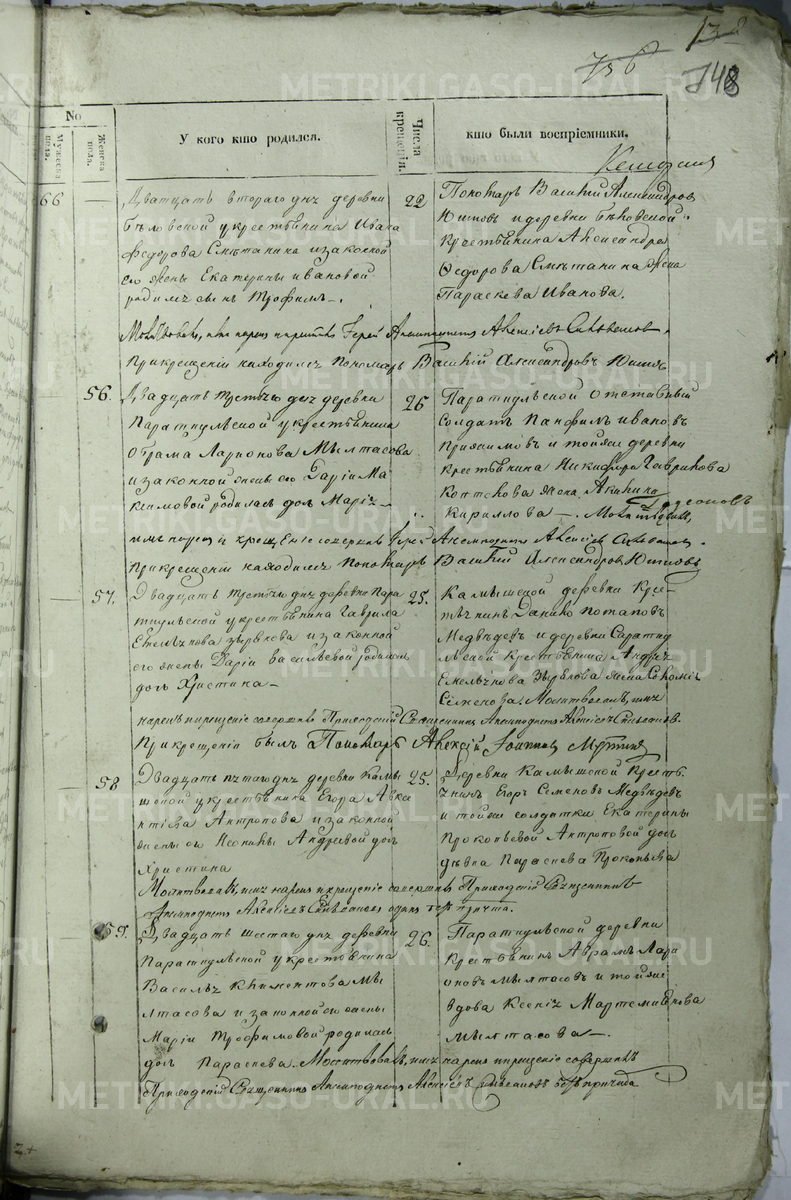 138
756
748
No
Мужеска пола.
Женска пола.
У кого кто родился.
Числа крещенія.
кто были воспріемники.
66
Дватцать втораго дня деревни
Бѣловской у крестьянина Ивана
Федорова Смѣтанина и законной
его жены Екатерины Ивановой
родился сынъ Трофимъ.
22
Пономарь Василій Александровъ
и деревни Бѣловской
крестьянина Александра
Федорова Смѣтанина жена
Параскева Иванова.
Молитвовалъ, имя нарекъ и крестилъ Іерей Алексѣевъ
При крещеніи находился Пономарь Василій Александровъ
56.
Двадцать третьяго дня деревни
Параткульской у крестьянина
Абрама Ларионова Мылтасова
и законной жены его Даріи Ма
ксимовой родилась дочь Марія
26
Параткульской отставный
солдатъ Панфилъ Ивановъ
и тойже деревни
крестьянина Никифора Гаврилова
жена Акилина
Кириллова. Молитвовалъ,
имя нарекъ и крещеніе совершилъ Іерей Алексѣевъ
При крещеніи находился Пономарь Василій Александровъ
57.
Двадцать третьяго дня деревни Пара
ткульской у крестьянина Гаврила
Емельянова Зырянова и законной
его жены Даріи Васильевой родилась
дочь Христина
25.
Камышской деревни Кре
стьянинъ Данило Потаповъ
Медвѣдевъ и деревни
крестьянина Андрея
Емельянова Зырянова жена
Семенова. Молитвовалъ, имя
нарекъ и крещеніе совершилъ Приходскій Священникъ Алексѣевъ
При крещеніи былъ Пономарь Алексѣй
58
Двадцать пятаго дня деревни Камы
шской у крестьянина Егора Авкс
нтіева Антропова и законной
жены его Андреевой дочь
Христина
25.
Деревни Камышской Кресть
янинъ Егоръ Семеновъ Медвѣдевъ
и тойже солдатки Екатерины
Прокопьевой Антроповой дочь
дѣвка Параскева Прокопьева
Молитвовалъ, имя нарекъ и крещеніе совершилъ Приходскій Священникъ
Алексѣевъ одинъ безъ причта.
59.
Двадцать шестаго дня деревни
Параткульской у крестьянина
Василья Климентова Мы
лтасова и законной его жены
Маріи Трофимовой родилась
дочь Параскева. Молитвовалъ, имя нарекъ и крещеніе совершилъ
26.
Параткульской деревни
Крестьянинъ Аврамъ Лари
оновъ Мылтасовъ и тойже
вдова Ксенія Мартемианова
Мылтасова.
Приходскій Священникъ Алексѣевъ безъ причта
METRIKI.GASO-URAL.RU